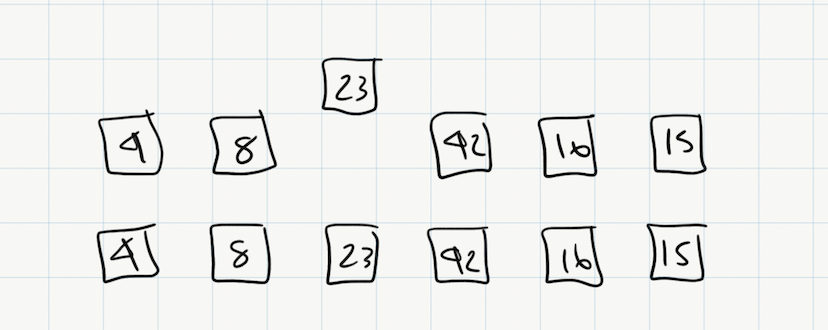 23
4 8 42 16 15
4 8 23 42 16 15